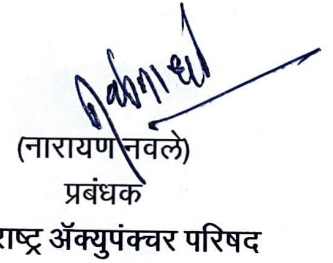 (नारायण नवले)
प्रबंधक
राष्ट्र ॲक्युपंक्चर परिषद